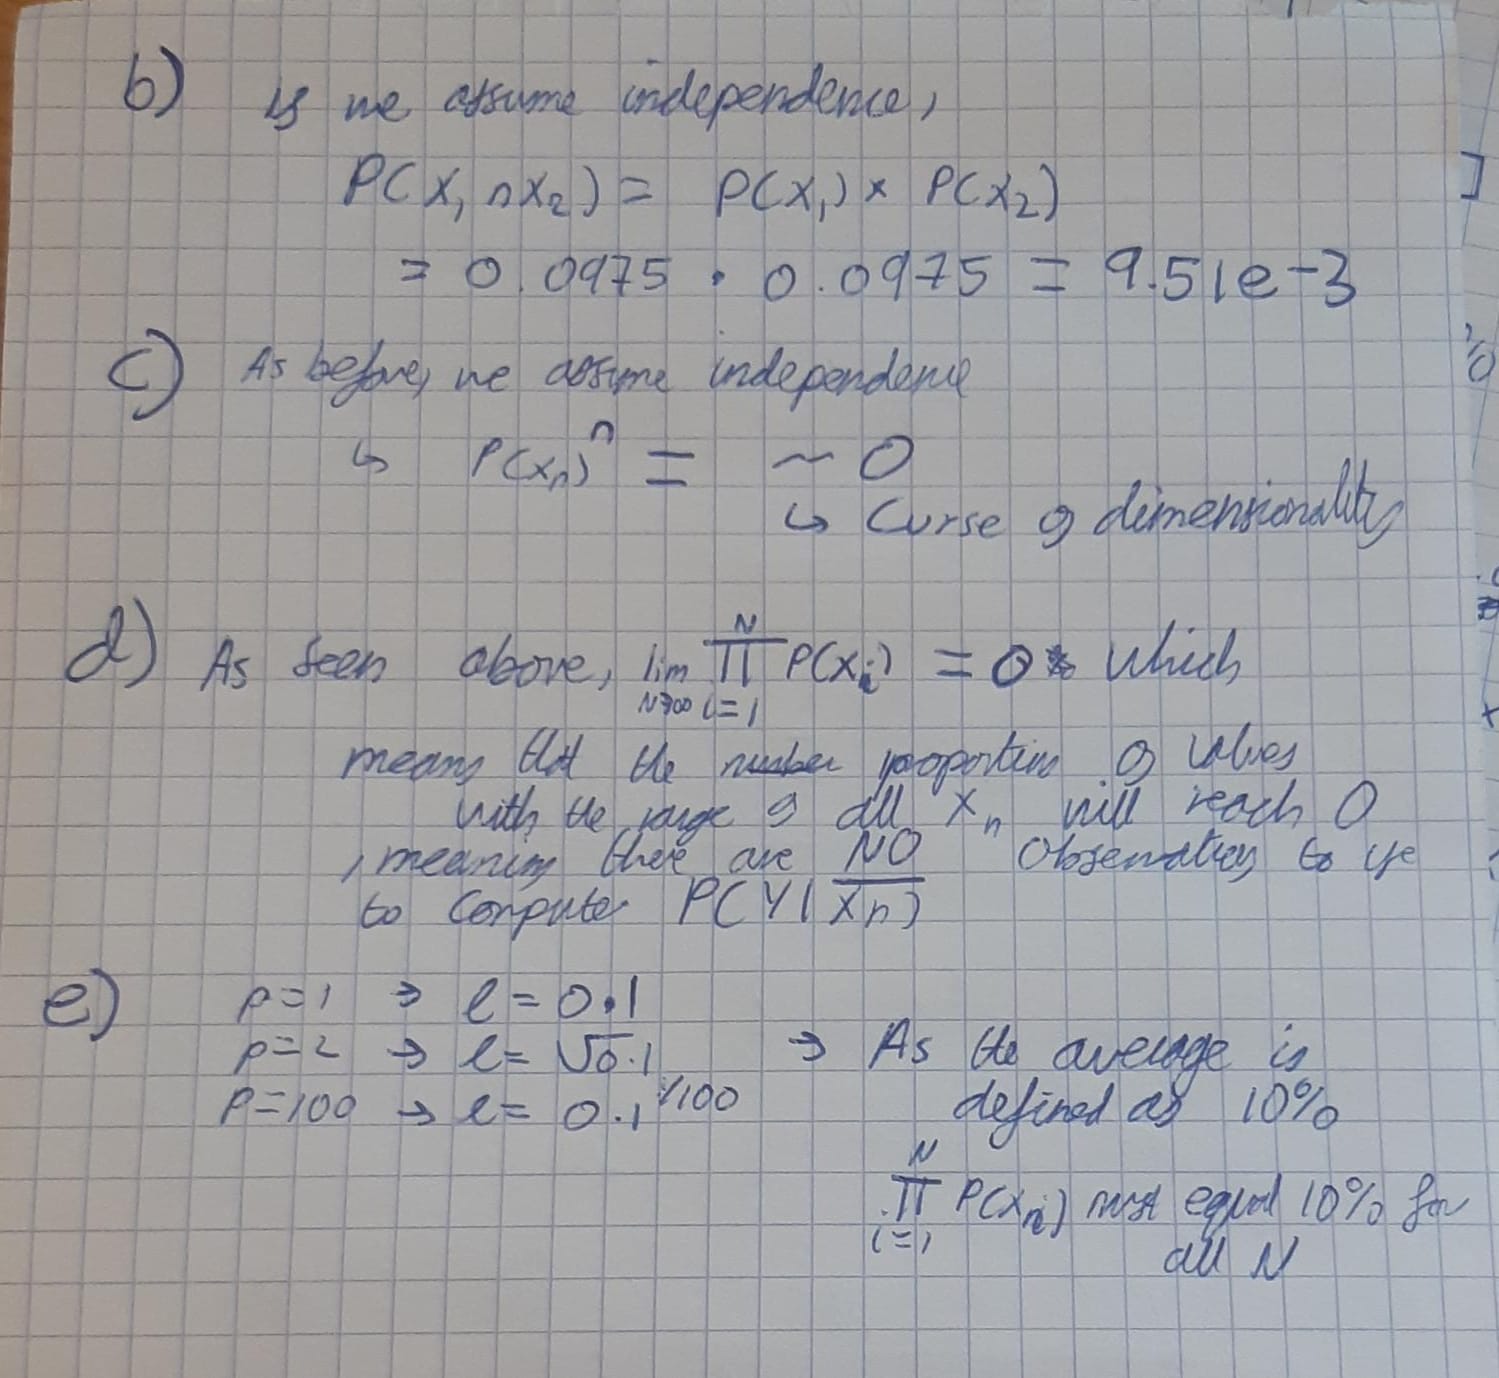 b) If we assume independence,
P(X₁ ∩ X₂) = P(X₁) × P(X₂)
= 0.0975 · 0.0975 = 9.51e-3
c) As before, we assume independence
↳ P(Xₙ)ⁿ = ~ 0
↳ Curse of dimensionality
d) As seen above, lim N→∞ ∏ᵢ₌₁ᴺ P(Xᵢ) = 0 which
means that the number proportion of values
with the range of all Xₙ will reach 0
, meaning there are NO observations to use
to compute P(Y|Xₙ)
e) p=1 → l = 0.1
p=2 → l = √0.1 → As the average is
p=100 → l = 0.1^1/100 defined as 10%
∏ᵢ₌₁ᴺ P(Xᵢ) must equal 10% for
all N